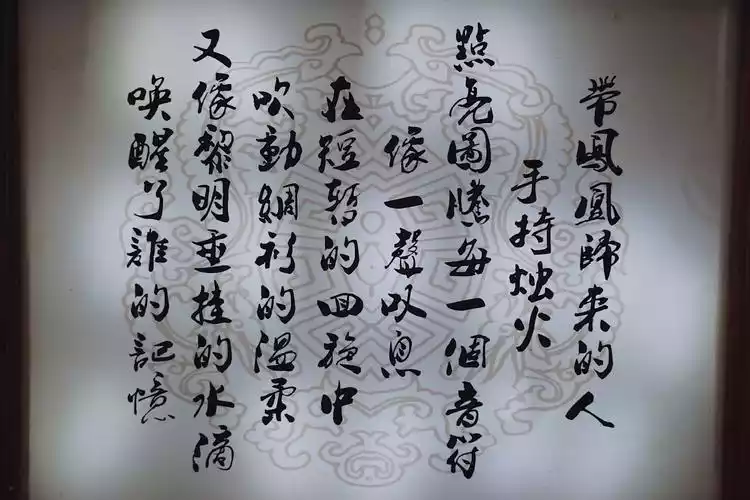 帶鳳凰歸来的人
手持烛火
點亮圖騰每一個音符
像一聲叹息
在短暫的回旋中
吹動綢衫的溫柔
又像黎明垂挂的水滴
喚醒了誰的記憶